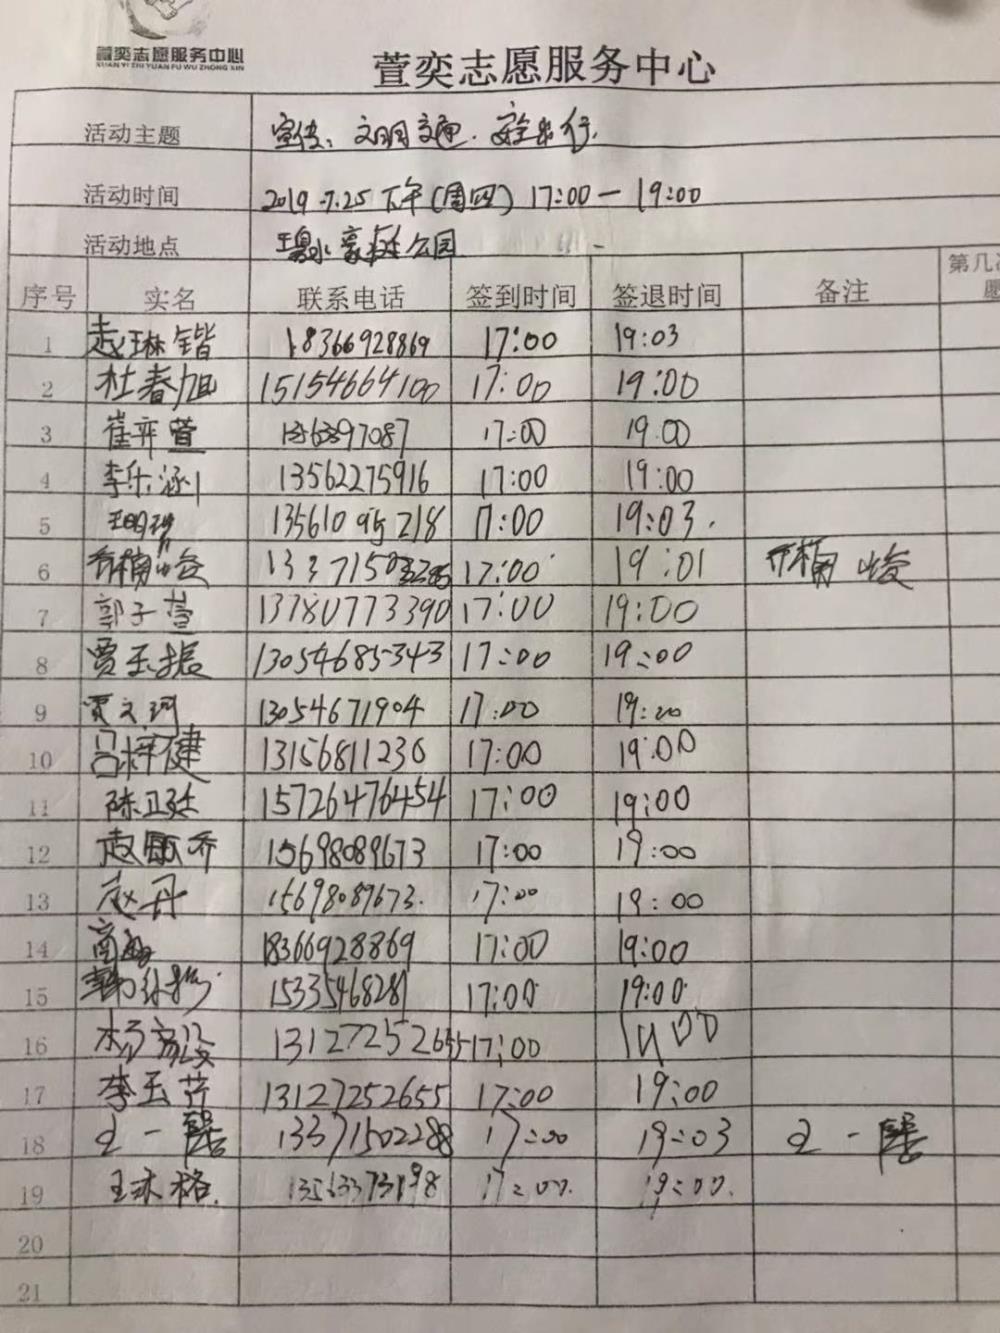 萱奕志愿服务中心
XUAN YI ZHI YUAN FU WU ZHONG XIN
萱奕志愿服务中心
活动主题 宣传：文明交通.安全出行.
活动时间 2019.7.25下午(周四) 17:00一19:00
活动地点 碧水豪庭公园
序号 实名 联系电话 签到时间 签退时间 备注 第几
愿
1 赵琳锴 18366928869 17:00 19:03
2 杜春旭 15154664100 17:00 19:00
3 崔弈萱 17:00 19.00
4 李乐涵 13562275916 17:00 19:00
5 135610 218 17:00 19:03.
6 17:00 19:01
7 郭子萱 13780773390 17:00 19:00
8 贾玉振 13054685343 17:00 19:00
9 贾文珂 13054671904 17:00 19:00
10 吕梓健 13156811230 17:00 19:00
11 陈卫廷 15726476454 17:00 19:00
12 赵 乔 15698089673 17:00 19:00
13 赵丹 15698089673. 17:00 19:00
14 商 18366928869 17:00 19:00
15 韩 15335468281 17:00 19:00
16 杨 13127252655 17:00 19:00
17 李玉芹 13127252655 17:00 19:00
18 一 13371502288 17:00 19:03 一
19 王 格. 17:00. 19:00.
20
21